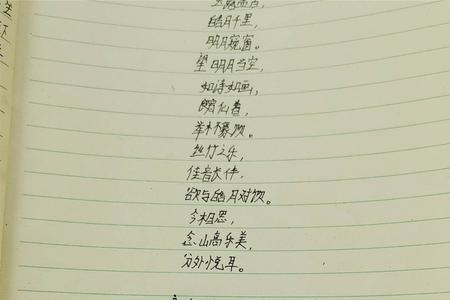 皓月千里，
明月窥窗。
望明月当空，
如诗如画，
仙着，
举杯饮。
丝竹之乐，
佳音长伴，
欲与皓月对饮。
今相思，
念山高乐美，
分外悦耳。